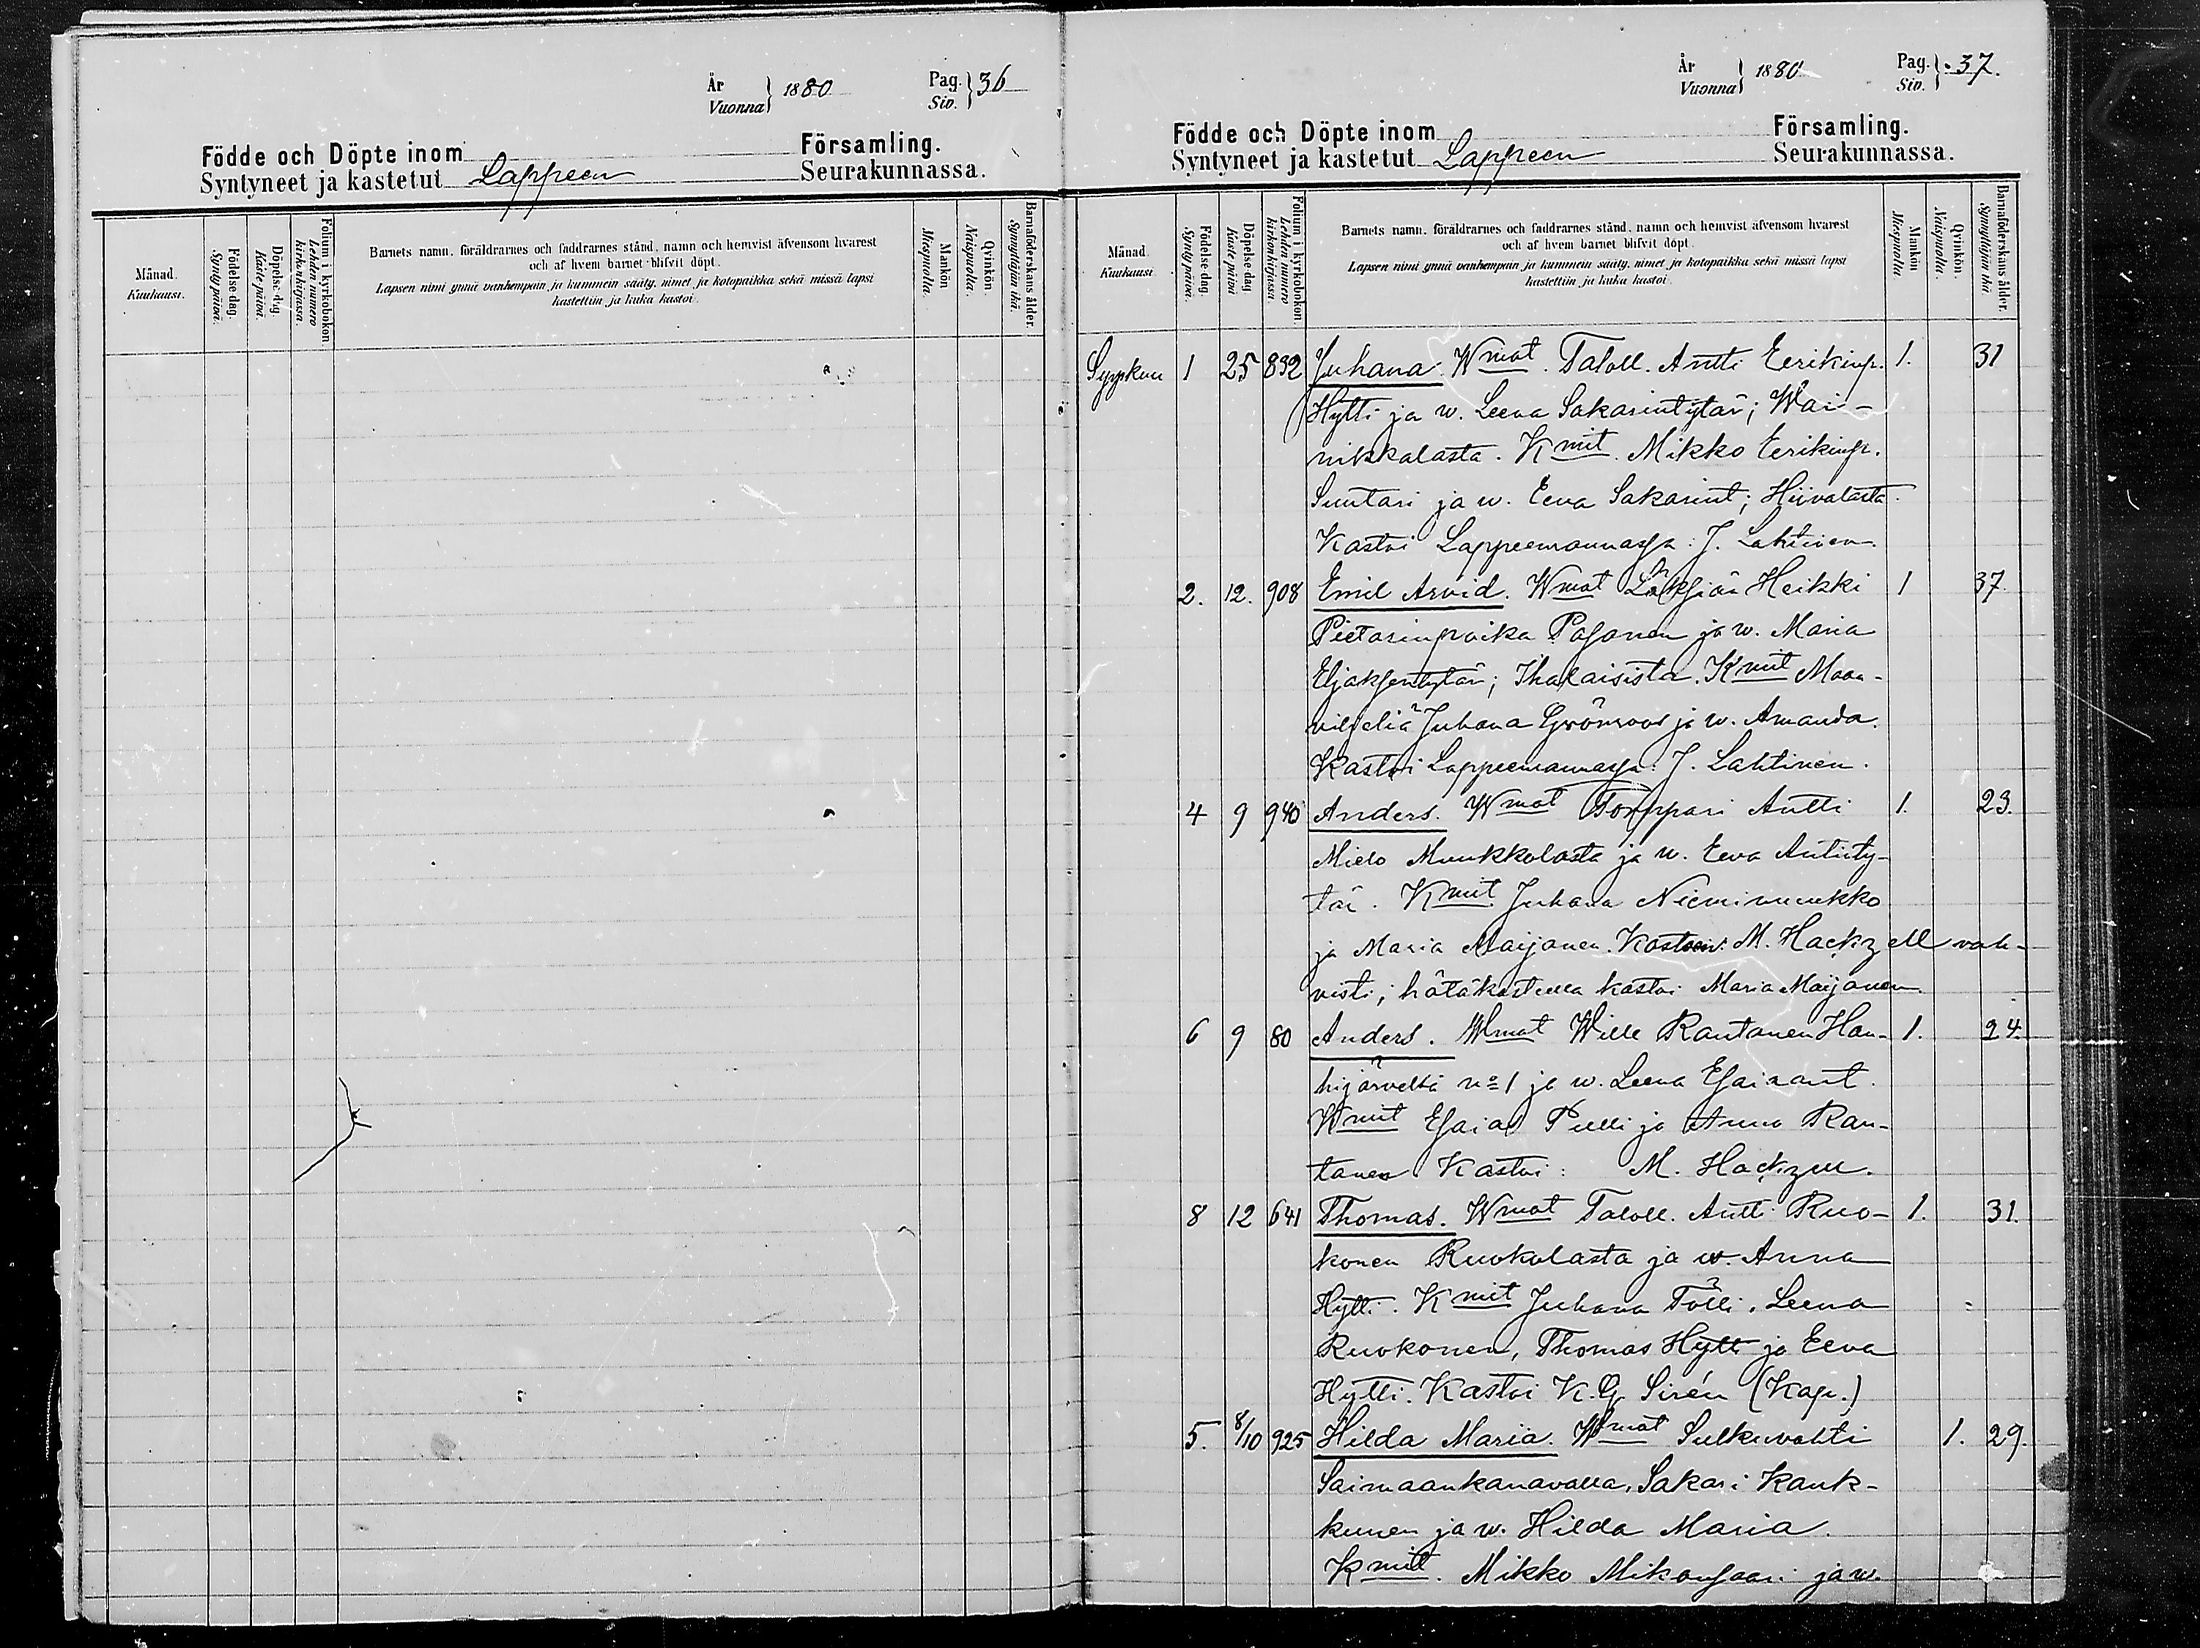 År
Vuonna } 1880 Pag.
Siv. } 36
Födde och Döpte inom Församling.
Syntyneet ja kastetut Lappeen Seurakunnassa.
Månad.
Kuukausi.
Födelse-dag.
Synty päivä.
Döpelse-dag.
Kaste-päivä.
Folium i kyrkoboken.
Lehden numero
kirkonkirjassa.
Barnets namn, föräldrarnes och faddrarnes stånd, namn och hemvist äfvensom hvarest
och af hvem barnet blifvit döpt.
Lapsen nimi ynnä vanhempain ja kummein sääty, nimet ja kotopaikka sekä missä lapsi
kastettiin ja kuka kastoi.
Mankön
Miespuolia.
Qvinkön.
Naispuolia.
Barnaföderskans ålder.
Synnyttäjän ikä.
År
Vuonna } 1880 Pag.
Siv. } 37.
Födde och Döpte inom Församling.
Syntyneet ja kastetut Lappeen Seurakunnassa.
Månad
Kuukausi
Födelse-dag.
Synty päivä.
Döpelse-dag
Kaste päivä
Folium i kyrkoboken.
Lehden numero
kirkonkirjassa.
Barnets namn, föräldrarnes och faddrarnes stånd, namn och hemvist äfvensom hvarest
och af hvem barnet blifvit döpt.
Lapsen nimi ynnä vanhempain ja kummein sääty, nimet ja kotopaikka sekä missä lapsi
kastettiin ja kuka kastoi.
Mankön
Miespuolia.
Qvinkön.
Naispuolia.
Barnaföderskans ålder.
Synnyttäjän ikä.
Syyskuu 1 25 892 Juhana Wmat. Taloll. Antti Eerikinp. 1. 31
Hytti ja w. Leena Sakarintytär; Wai-
nikkalasta. Kmit. Mikko Eerikinp.
Suutari ja w. Eeva Sakarint; Hiivalasta.
Kastoi Lappeenrannassa: J. Lahtinen.
2. 12. 908 Emil Arvid. Wmat Heikki 1 37.
Pietarinpoika Pasanen ja w. Maria
Eljaksentytär; Ihalaisista. Kmit Maan-
viljeliä Juhana Grönroos ja w. Amanda.
Kastoi Lappeenrannassa: J. Lahtinen.
4 9 940 Anders. Wmat Torppari Antti 1. 23.
Mielo Muukkolasta ja w. Eeva Antinty-
tär. Kmit Juhana Niemimuukko
ja Maria Maijanen. M. Hackzell vah-
visti; hätäkasteella kastoi Maria Maijanen.
6 9 80 Anders. Wmat Wille Rautanen Han- 1. 24.
hijärveltä no 1 ja w. Leena Esaiaant.
Wmit Esaias Pulli ja Anna Rau-
tanen Kastoi: M. Hackzell.
8 12 641 Thomas. Wmat Taloll. Antti Ruo- 1. 31.
konen Ruokolasta ja w. Anna
Hytti. Kmit Juhana Tölli, Leena
Ruokonen, Thomas Hytti ja Eeva
Hytti. Kastoi K. G. Sirén (Kap.)
5. 8/10 925 Hilda Maria. Wmat Sulkuvahti 1. 29.
Saimaankanavalla, Sakari Kauk-
kunen ja w. Hilda Maria.
Kmit. Mikko Mikonsaari ja w.